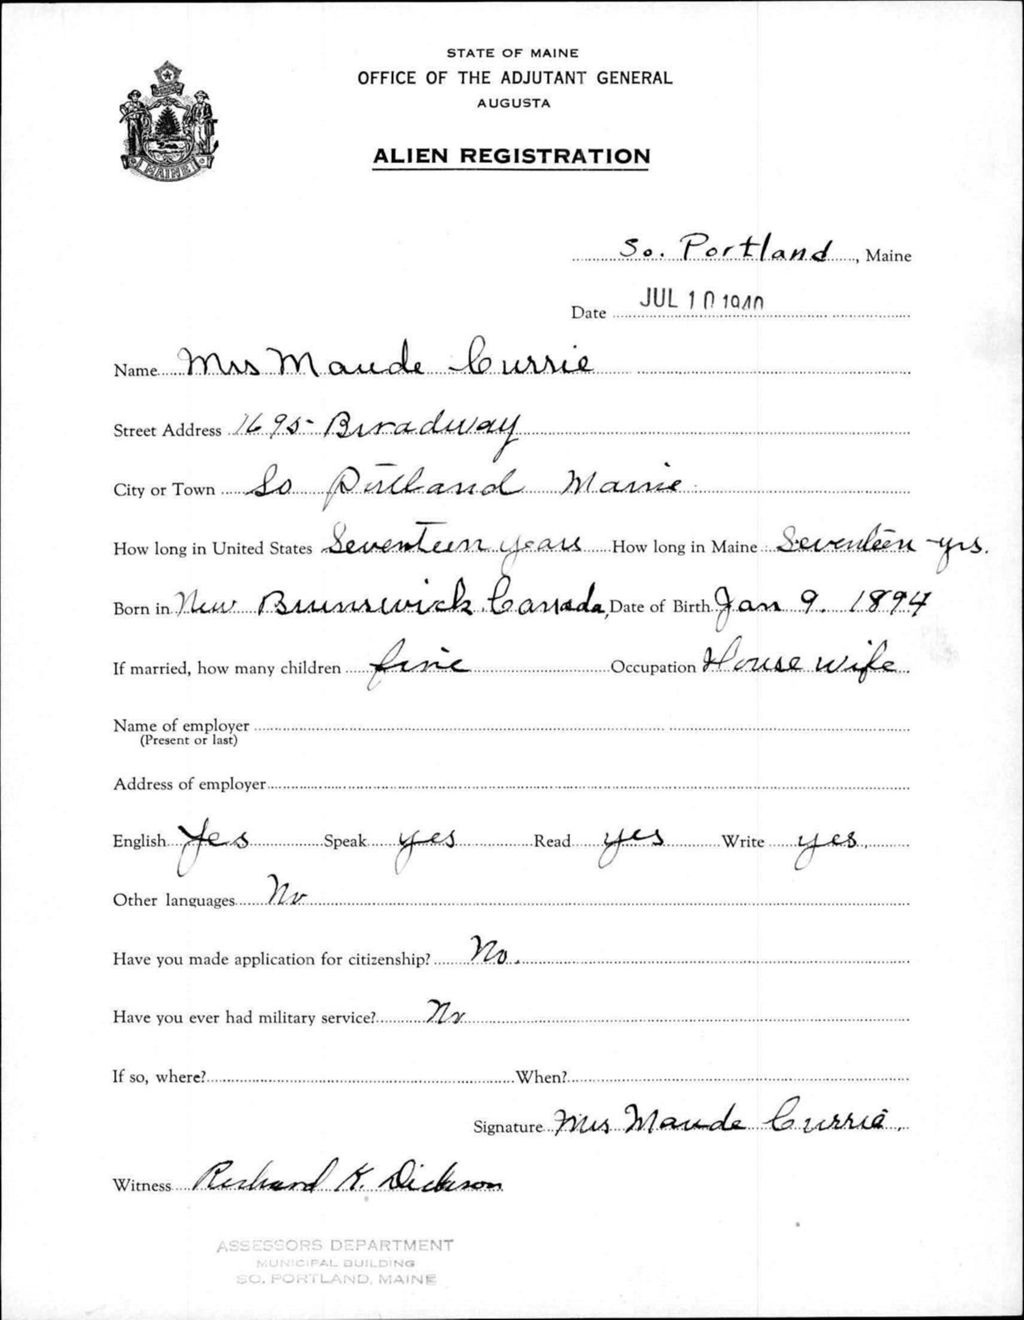 STATE OF MAINE
OFFICE OF THE ADJUTANT GENERAL
AUGUSTA
ALIEN REGISTRATION
MAINE
So. Portland, Maine
Date JUL 10 1940
Name Mrs Maude Currie
Street Address 1695 Broadway
City or Town So Portland Maine
How long in United States Seventeen years How long in Maine Seventeen yrs.
Born in New Brunswick, Canada, Date of Birth Jan 9. 1894
If married, how many children five Occupation House wife
Name of employer
(Present or last)
Address of employer
English Yes Speak yes Read yes Write yes.
Other languages No
Have you made application for citizenship? No.
Have you ever had military service? No
If so, where? When?
Signature Mrs Maude Currie.
Witness Richard K. Dickson
ASSESSORS DEPARTMENT
MUNICIPAL BUILDING
SO. PORTLAND, MAINE